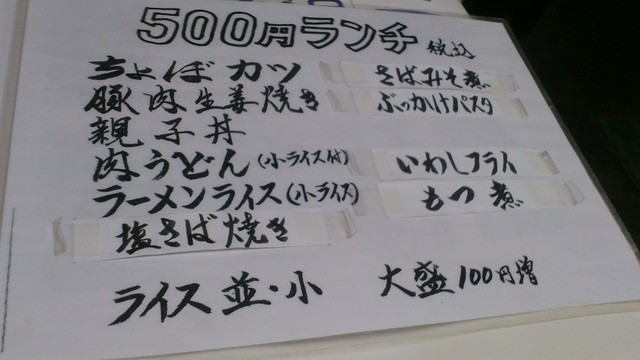 500円ランチ 税込
ちょぼカツ さばみそ煮
豚肉生姜焼き ぶっかけパスタ
親子丼
肉うどん(小ライス付) いわしフライ
ラーメンライス(小ライス) もつ煮
塩さば焼き
ライス 並・小 大盛100円増